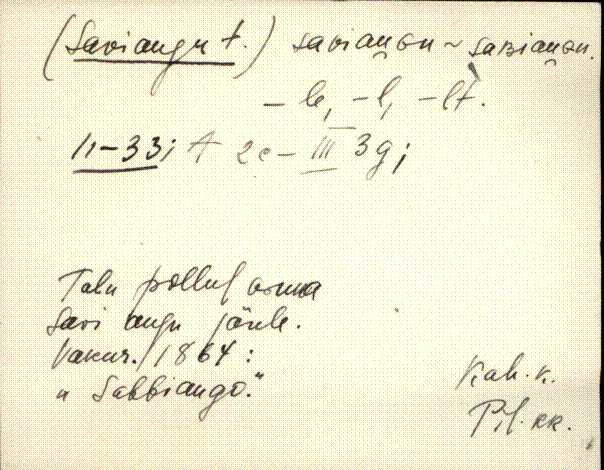 (Saviangu t.) saviaŋŋu ~ saʙiaŋŋu.
– le, – l, – lt.
11–33; A 2c – III 3g;
Talu põllul oma
Savi angu järele.
Vakur. 1864:
„Sabbiango."
Kah. k.
Pil. kk.